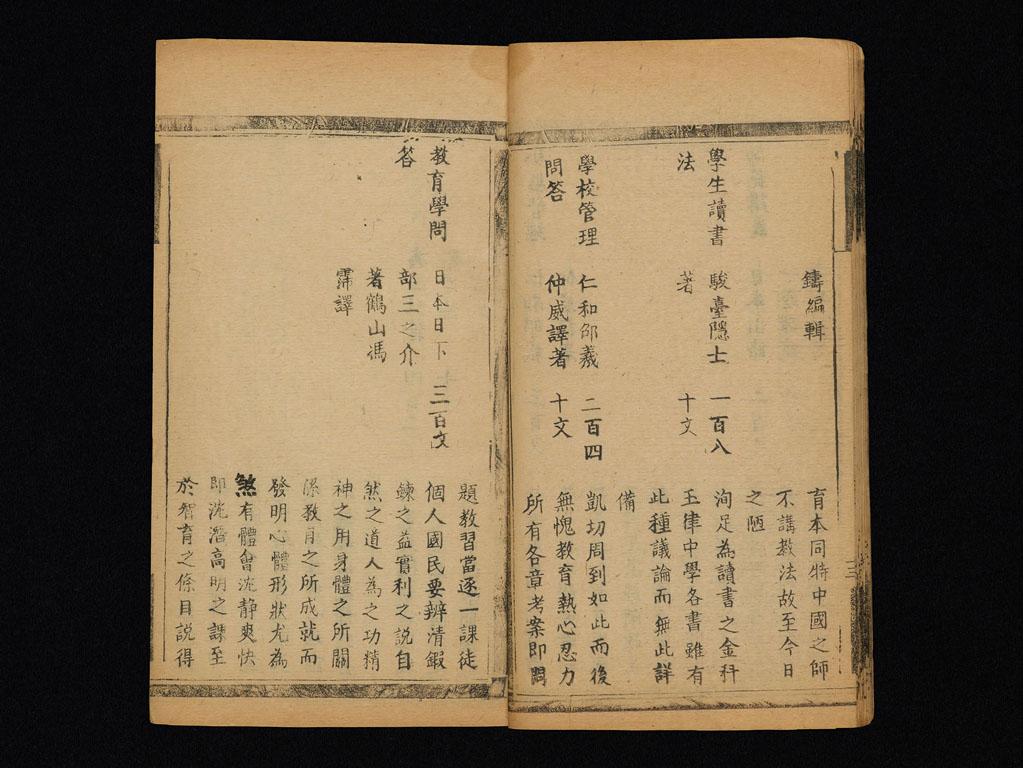 鑄編輯
育本同特中國之師
不講教法故至今日
之陋
學生讀書
法
駿臺隱士
著
一百八
十文
洵足為讀書之金科
玉律中學各書雖有
此種議論而無此詳
備
學校管理
問答
仁和邵羲
仲威譯著
二百四
十文
凱切周到如此而後
無愧教育熱心忍力
所有各章考案即問
教育學問
答
日本日下
部三之介
著鶴山馮
霈譯
三百文
題教習當逐一課徒
個人國民要辨清鍜
鍊之益實利之說自
然之道人為之功精
神之用身體之所關
係教育之所成就而
發明心體形狀尤為
煞有體會沈静爽快
即沈潛高明之課至
於智育之條目說得